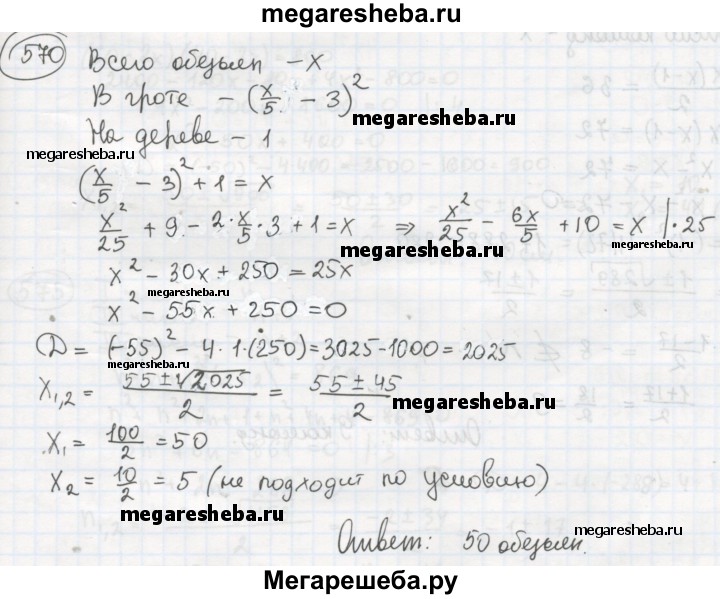 megaresheba.ru
570 Всего обезьян - x
В гроте - (x/5 - 3)²
На дереве - 1
megaresheba.ru megaresheba.ru
(x/5 - 3)² + 1 = x
x²/25 + 9 - 2·x/5·3 + 1 = x ⇒ x²/25 - 6x/5 + 10 = x |·25
megaresheba.ru
x² - 30x + 250 = 25x
megaresheba.ru
x² - 55x + 250 = 0
D = (-55)² - 4·1·(250) = 3025 - 1000 = 2025
x₁,₂ = (55 ± √2025)/2 = (55 ± 45)/2
megaresheba.ru
x₁ = 100/2 = 50
x₂ = 10/2 = 5 (не подходит по условию)
megaresheba.ru megaresheba.ru
Ответ: 50 обезьян.
Мегарешеба.ру